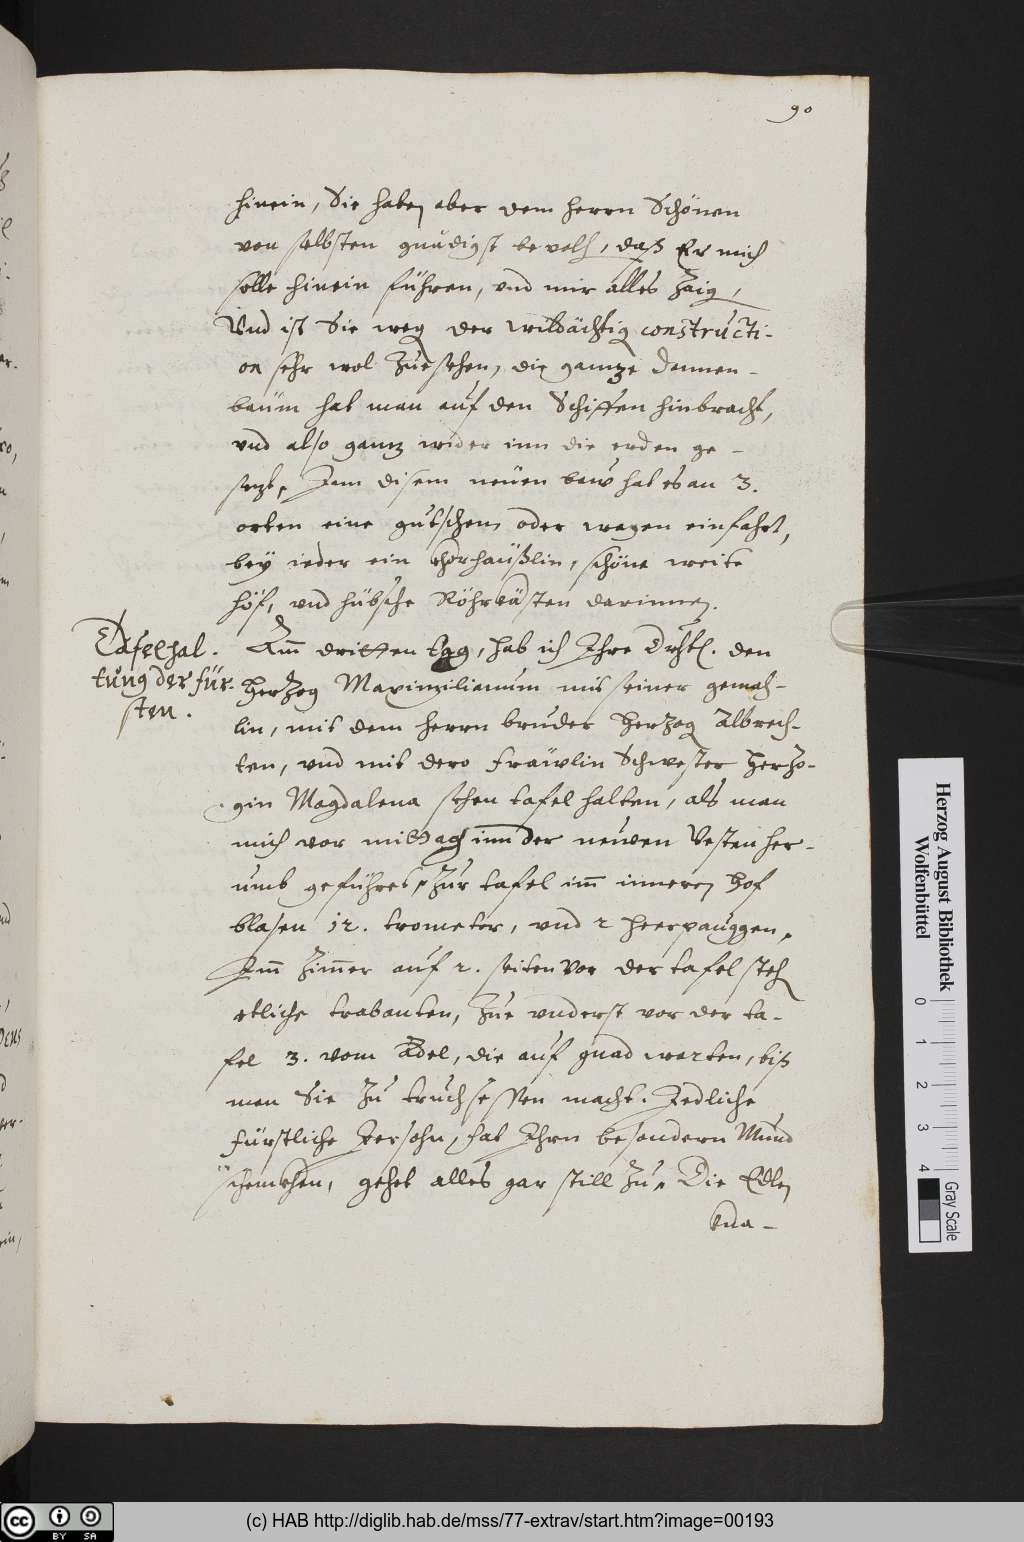 90
hinein, Sie haben aber dem herrn Schönen
von selbsten gnädigst bevolh, daß Er mich
solle hinein führen, vnd mir alles zaig,
Vnd ist Sie weg der wildächtig constructi-
on sehr wol zuesehen, die gantze dennen-
bäum hat man auf den Schiffen hinbracht,
vnd also gantz wider inn die erden ge-
setzt, Inn disem neüen baw hat es an 3.
orten eine gutschen oder wagen einfahrt,
bey ieder ein thorhäußlin, schöne weite
höf, vnd hübsche Röhrkästen darinnen.
Tafelhal-
tung der für-
sten.
Am dritten tag, hab ich Ihre Drhtl. den
Herzog Maximilianum mit seiner gemah-
lin, mit dem herrn bruder Herzog Albrech-
ten, vnd mit dero fräwlin Schwester Herzo-
gin Magdalena sehen tafel halten, als man
mich vor mittag inn der neuen Vesten her-
umb geführet, Zur tafel im inneren Hof
blasen 12. trometer, vnd 2 heerpauggen,
Im Zimmer auf 2. seiten vor der tafel steh
etliche trabanten, Zue vnderst vor der ta-
fel 3. vom Adel, die auf gnad warten, biß
man Sie zu truchsessen macht. Jedliche
fürstliche Person, hat Ihrn besondern Mund
schenkhen, gehet alles gar still zu, Die Edlen
kna-
Herzog August Bibliothek
Wolfenbüttel
0 1 2 3 4
Gray Scale
(c) HAB http://diglib.hab.de/mss/77-extrav/start.htm?image=00193
cc BY SA